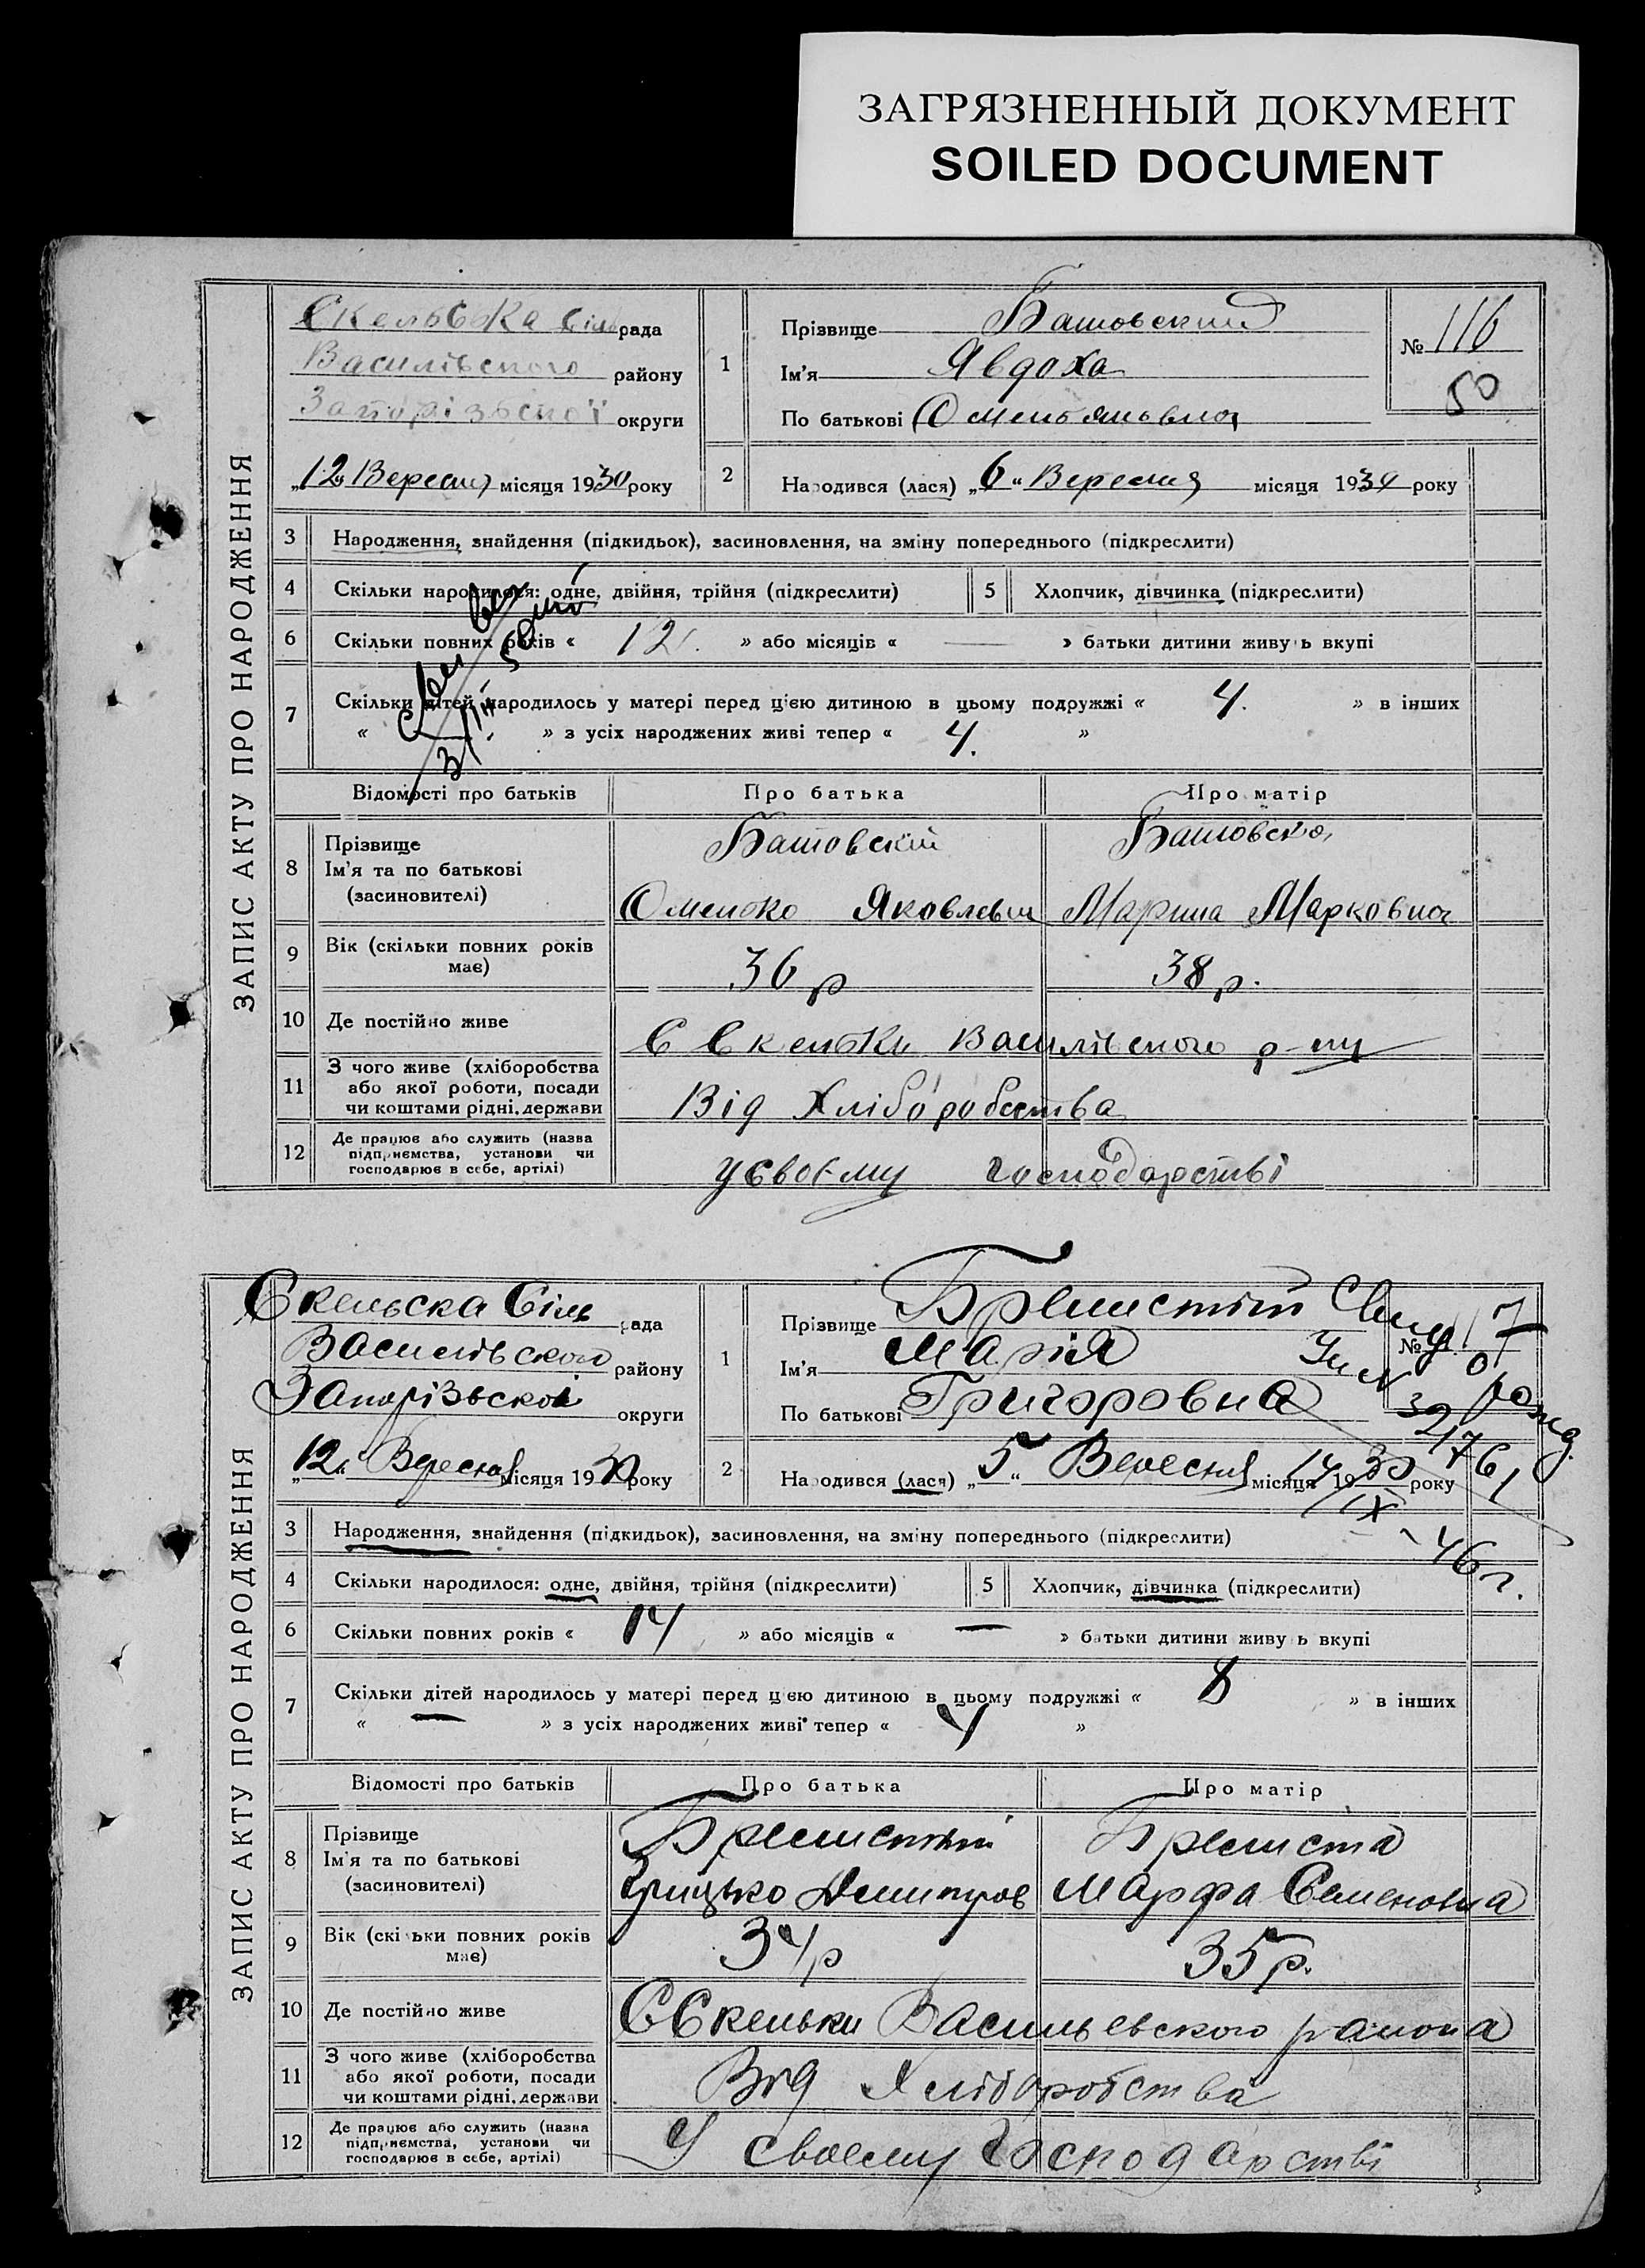 ЗАГРЯЗНЕННЫЙ ДОКУМЕНТ
SOILED DOCUMENT
ЗАПИС АКТУ ПРО НАРОДЖЕННЯ
Скельсоka Сіль рада
Василівского району
Запорізьської округи
„12“ Вересня місяця 1930 року
1
Прізвище Батовский
Ім'я Явдоха
По батькові Омельяновна
№ 116
50
2
Народився (лася) „6“ Вересня місяця 1930 року
3 Народження, знайдення (підкидьок), засиновлення, на зміну попереднього (підкреслити)
4 Скільки народилося: одне, двійня, трійня (підкреслити)
5 Хлопчик, дівчинка (підкреслити)
6 Скільки повних років « 12. » або місяців « — » батьки дитини живуть вкупі
7 Скільки дітей народилось у матері перед цією дитиною в цьому подружжі « 4. » в інших
« » з усіх народжених живі тепер « 4. »
Відомості про батьків Про батька Про матір
8 Прізвище
Ім'я та по батькові
(засиновителі)
Батовскій
Омелько Яковлевич
Батовска
Марина Марковна
9 Вік (скільки повних років має)
36 р
38 р.
10 Де постійно живе
С Скельки Василівского р-ну
11 З чого живе (хліборобства
або якої роботи, посади
чи коштами рідні, держави
Від Хліборобства
12 Де працює або служить (назва
підприємства, установи чи
господарює в себе, артілі)
у своєму господарстві
ЗАПИС АКТУ ПРО НАРОДЖЕННЯ
Скельска Сіль рада
Василівского району
Запорізьскої округи
„12“ Вересня місяця 1930 року
1
Прізвище
Ім'я Марія
По батькові Григоровна
№ 117
2
Народився (лася) „5“ Вересня місяця 1930 року
14/IX-46 г.
3 Народження, знайдення (підкидьок), засиновлення, на зміну попереднього (підкреслити)
4 Скільки народилося: одне, двійня, трійня (підкреслити)
5 Хлопчик, дівчинка (підкреслити)
6 Скільки повних років « 14 » або місяців « — » батьки дитини живуть вкупі
7 Скільки дітей народилось у матері перед цією дитиною в цьому подружжі « 8 » в інших
« » з усіх народжених живі тепер « 4 »
Відомості про батьків Про батька Про матір
8 Прізвище
Ім'я та по батькові
(засиновителі)
Грицько Дмитров
Марфа Семеновна
9 Вік (скільки повних років має)
34 р
35 р.
10 Де постійно живе
С Скельки Васильевского района
11 З чого живе (хліборобства
або якої роботи, посади
чи коштами рідні, держави
Від Хліборобства
12 Де працює або служить (назва
підприємства, установи чи
господарює в себе, артілі)
У своему Господарстві